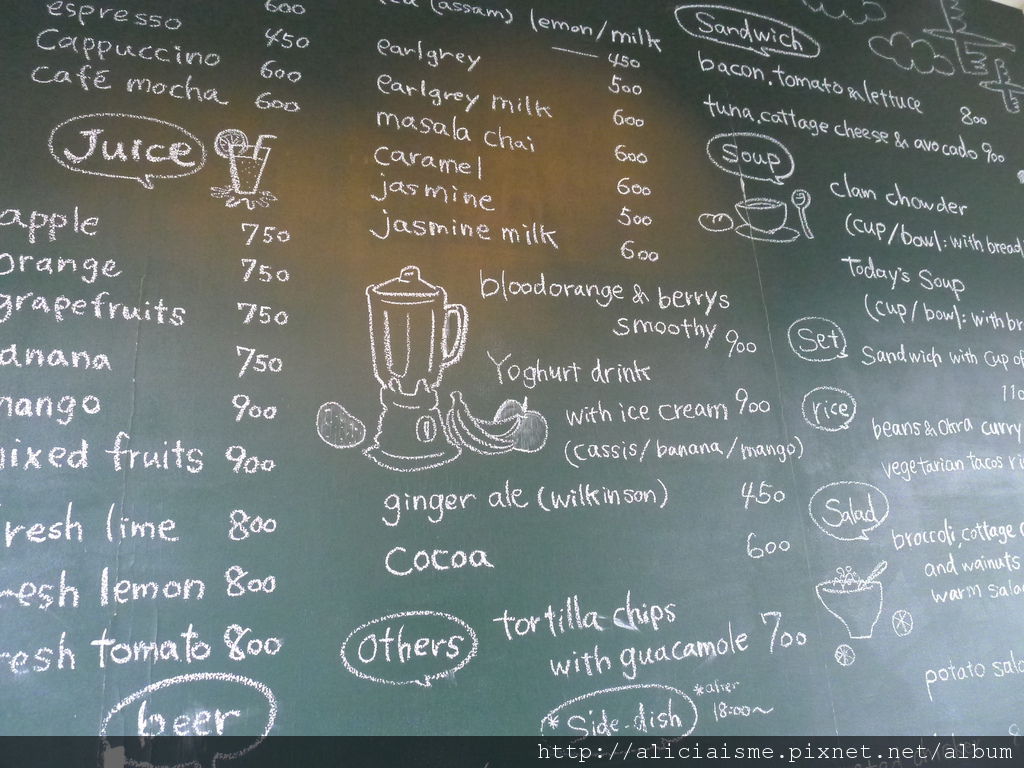 espresso 600
cappuccino 450
café mocha 600
600
Juice
apple 750
orange 750
grapefruits 750
banana 750
mango 900
mixed fruits 900
fresh lime 800
fresh lemon 800
fresh tomato 800
beer
tea (assam) (lemon/milk
450
earlgrey 500
earlgrey milk 600
masala chai 600
caramel 600
jasmine 500
jasmine milk 600
bloodorange & berrys
smoothy 900
Yoghurt drink
with ice cream 900
(cassis/banana/mango)
ginger ale (wilkinson) 450
cocoa 600
others
tortilla chips
with guacamole 700
*Side-dish *after
18:00~
Sandwich
bacon.tomato & lettuce 800
tuna,cottage cheese & avocado 900
Soup
clam chowder
(cup/bowl: with bread
Today's Soup
(cup/bowl: with br
Set
Sandwich with cup of
110
rice
beans & okra curry
vegetarian tacos ri
Salad
broccoli,cottage c
and walnuts
warm salad
potato sala
http://aliciaisme.pixnet.net/album